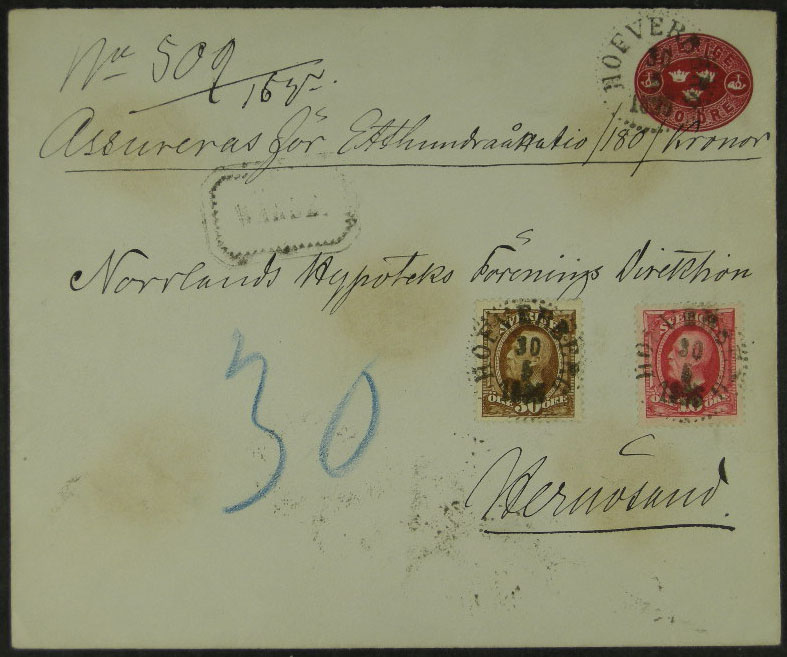 No 509
HOFVERBERG
30
SVERIGE
TIO ÖRE
Assureras för Etthundraåttatio /180/ Kronor
Norrlands Hypoteks Förenings Direktion
HOFVERBERG
30
5
SVERIGE
ÖRE 30 ÖRE
HOFVERBERG
30
5
SVERIGE
10 ÖRE
30
Hernösand.